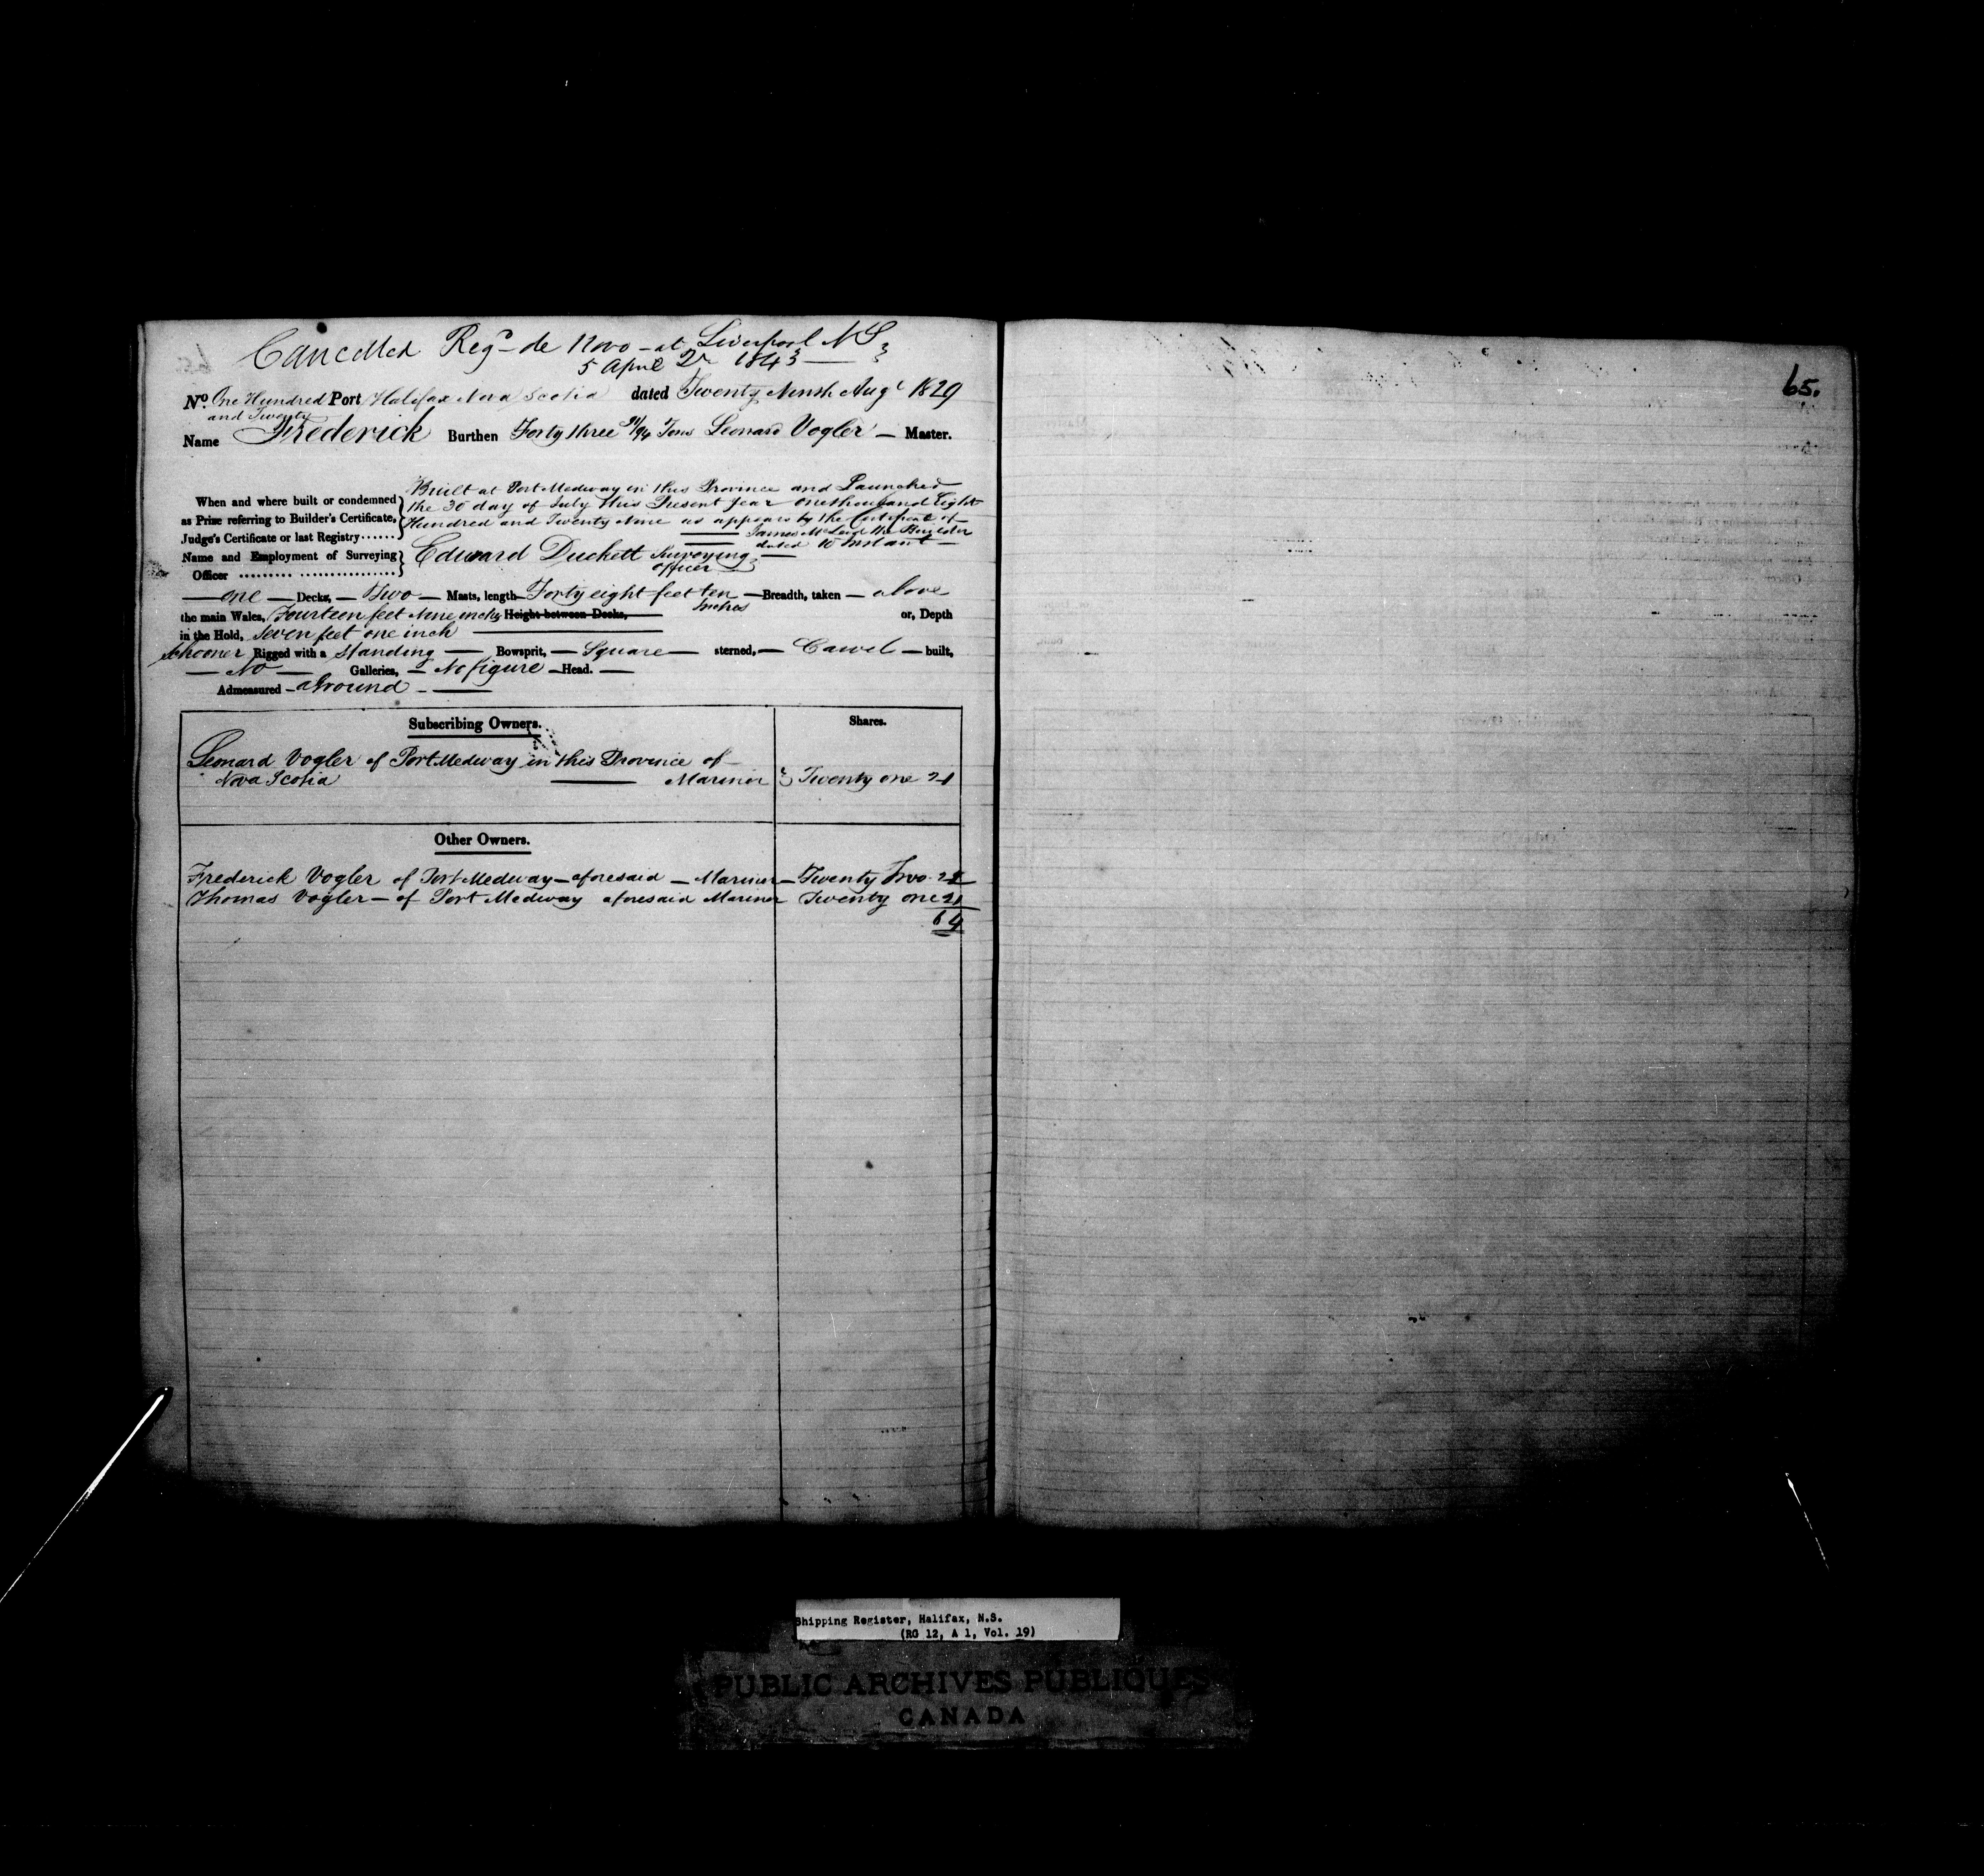 Cancelled Regd de Novo - at Liverpool NS
5 April 1843
65.
No. One Hundred Port Halifax Nova Scotia dated Twenty Ninth Augt 1829
and Twenty
Name Frederick Burthen Forty three 91/94 Tons Leonard Vogler — Master.
Built at Port Medway in this Province and Launched
When and where built or condemned the 30 day of July this Present year one thousand Eight
as Prize referring to Builder's Certificate, Hundred and Twenty Nine as appears by the Certificate of
Judge's Certificate or last Registry ...... James McLeod the Builder
dated 10 Instant
Name and Employment of Surveying Edward Duckett Surveying
Officer ......... ................ officer
— one — Decks, — Two — Masts, length Forty eight feet ten — Breadth, taken — above
Inches
the main Wales, Fourteen feet Nine inches Height between Decks, or, Depth
in the Hold, Seven feet one inch
Schooner Rigged with a Standing — Bowsprit, — Square — sterned, — Carvel — built,
— No — Galleries, — No figure — Head. —
Admeasured - aground -
Subscribing Owners. Shares.
Leonard Vogler of Port Medway in this Province of
Nova Scotia Mariner Twenty one 21
Other Owners.
Frederick Vogler of Port Medway — aforesaid — Mariner — Twenty Two 22
Thomas Vogler — of Port Medway aforesaid Mariner Twenty one 21
64
Shipping Register, Halifax, N.S.
(RG 12, A 1, Vol. 19)
PUBLIC ARCHIVES PUBLIQUES
CANADA